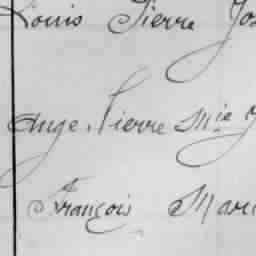 Louis Pierre Jos
Ange Pierre Mie
François Mari